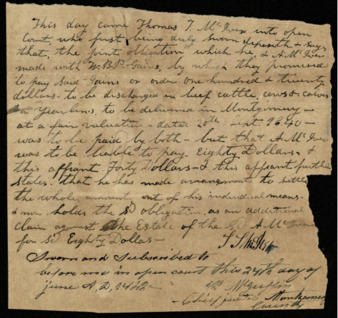 This day came Thomas T. McIver into open
Court, who first being duly sworn deposeth & says
that, the joint obligation which he, & A. McIver
made with W. B. P. Gains, by which they promised
to pay said Gains or order one hundred & twenty
dollars to be discharged in beef cattle cows & calves
or yearlins, to be delivered in Montgomery
at a fair valuation dated 20th Sept 1840
was to be paid by both - but that A. McIver
was to be liable to pay Eighty Dollars &
this affiant Forty Dollars & this affiant further
states, that he has made arrangement to settle
the whole amount out of his individual means.
& now holds the sd obligation, as an additional
claim against the Estate of the sd A. McIver
for sd Eighty Dollars
Sworn and Subscribed to
before me in open court this 24th day of
June A.D. 1842
Chief Justice Montgomery
County